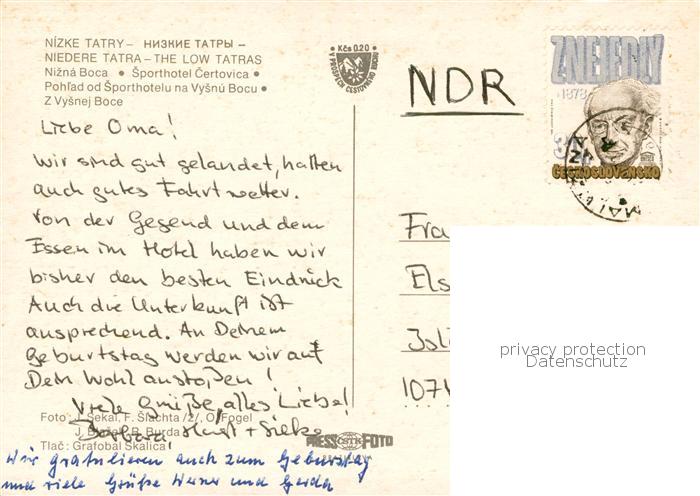 NÍZKE TATRY – НИЗКИЕ ТАТРЫ –
NIEDERE TATRA – THE LOW TATRAS
Nižná Boca • Športhotel Čertovica •
Pohľad od Športhotelu na Vyšnú Bocu •
Z Vyšnej Boce
Kčs 0.20
V PROSPECH CESTOVNÉHO RUCHU
NDR
Z NEJEDLÝ
1878
ČESKOSLOVENSKO
Liebe Oma!
Wir sind gut gelandet, hatten
auch gutes Fahrtwetter.
Von der Gegend und dem
Essen im Hotel haben wir
bisher den besten Eindruck
Auch die Unterkunft ist
ansprechend. An Deinem
Geburtstag werden wir auf
Dein Wohl anstoßen!
Viele Grüße, alles Liebe!
Barbara, Horst + Silke
Foto: J. Sekal, F. Šlachta /2/, O. Fogel
J. Blažek, R. Burda
Tlač: Grafobal Skalica
PRESS ČSTK FOTO
BRATISLAVA
Wir gratulieren auch zum Geburtstag
und viele Grüße Werner und Gerda
Fra
Els
1071
privacy protection
Datenschutz